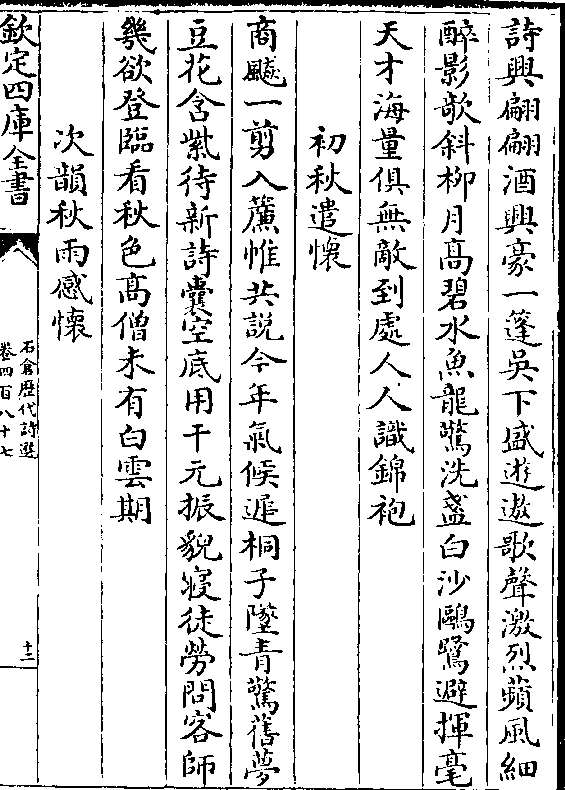 詩興翩翩酒興豪一篷吳下盛遊遨歌聲激烈蘋風細
醉影欹斜柳月髙碧水魚龍驚洗盞白沙鷗鷺避揮毫
天才海量俱無敵到處人人識錦袍
初秋遣懷
商飈一剪入簾惟共説今年氣候遲桐子墜青驚舊夢
豆花含紫待新詩囊空底用干元振貌寢徒勞問客師
幾欲登臨看秋色髙僧未有白雲期
次韻秋雨感懷
欽定四庫全書
石倉歴代詩選
卷四百八十七
十二